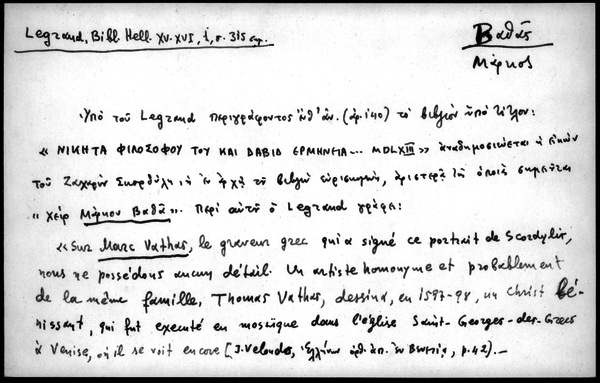 Legrand, Bibl. Hell. XV-XVI, i, σ. 315 εφ.
Βαθᾶς
Μάρκος
Ὑπὸ τοῦ Legrand περιγράφοντος ἐνθ' ἀν. (ἀρ. 140) τὸ βιβλίον ὑπὸ τίτλον:
« ΝΙΚΗΤΑ ΦΙΛΟΣΟΦΟΥ ΤΟΥ ΚΑΙ ΔΑΒΙΔ ΕΡΜΗΝΕΙΑ ... MDLXIII » ἀναδημοσιεύεται ἡ εἰκὼν
τοῦ Ζαχαρίου Σκορδύλη, ἡ ἐν ἀρχῇ τοῦ βιβλίου εὑρισκομένη, ἀριστερᾷ τῆς ὁποίας σημειοῦται
« Χεὶρ Μάρκου Βαθᾶ ». Περὶ αὐτοῦ ὁ Legrand γράφει:
« Sur Marc Vathas, le graveur grec qui a signé ce portrait de Scordylis,
nous ne possédons aucun détail. Un artiste homonyme et probablement
de la même famille, Thomas Vathas, dessina, en 1597-98, un Christ bé-
nissant, qui fut executé en mosaïque dans l'église Saint-Georges-des-Grecs
à Venise, où il se voit encore [J. Veloudos, Ἑλλήνων ὀρθ. ἀπ. ἐν Βενετίᾳ, p. 42). —